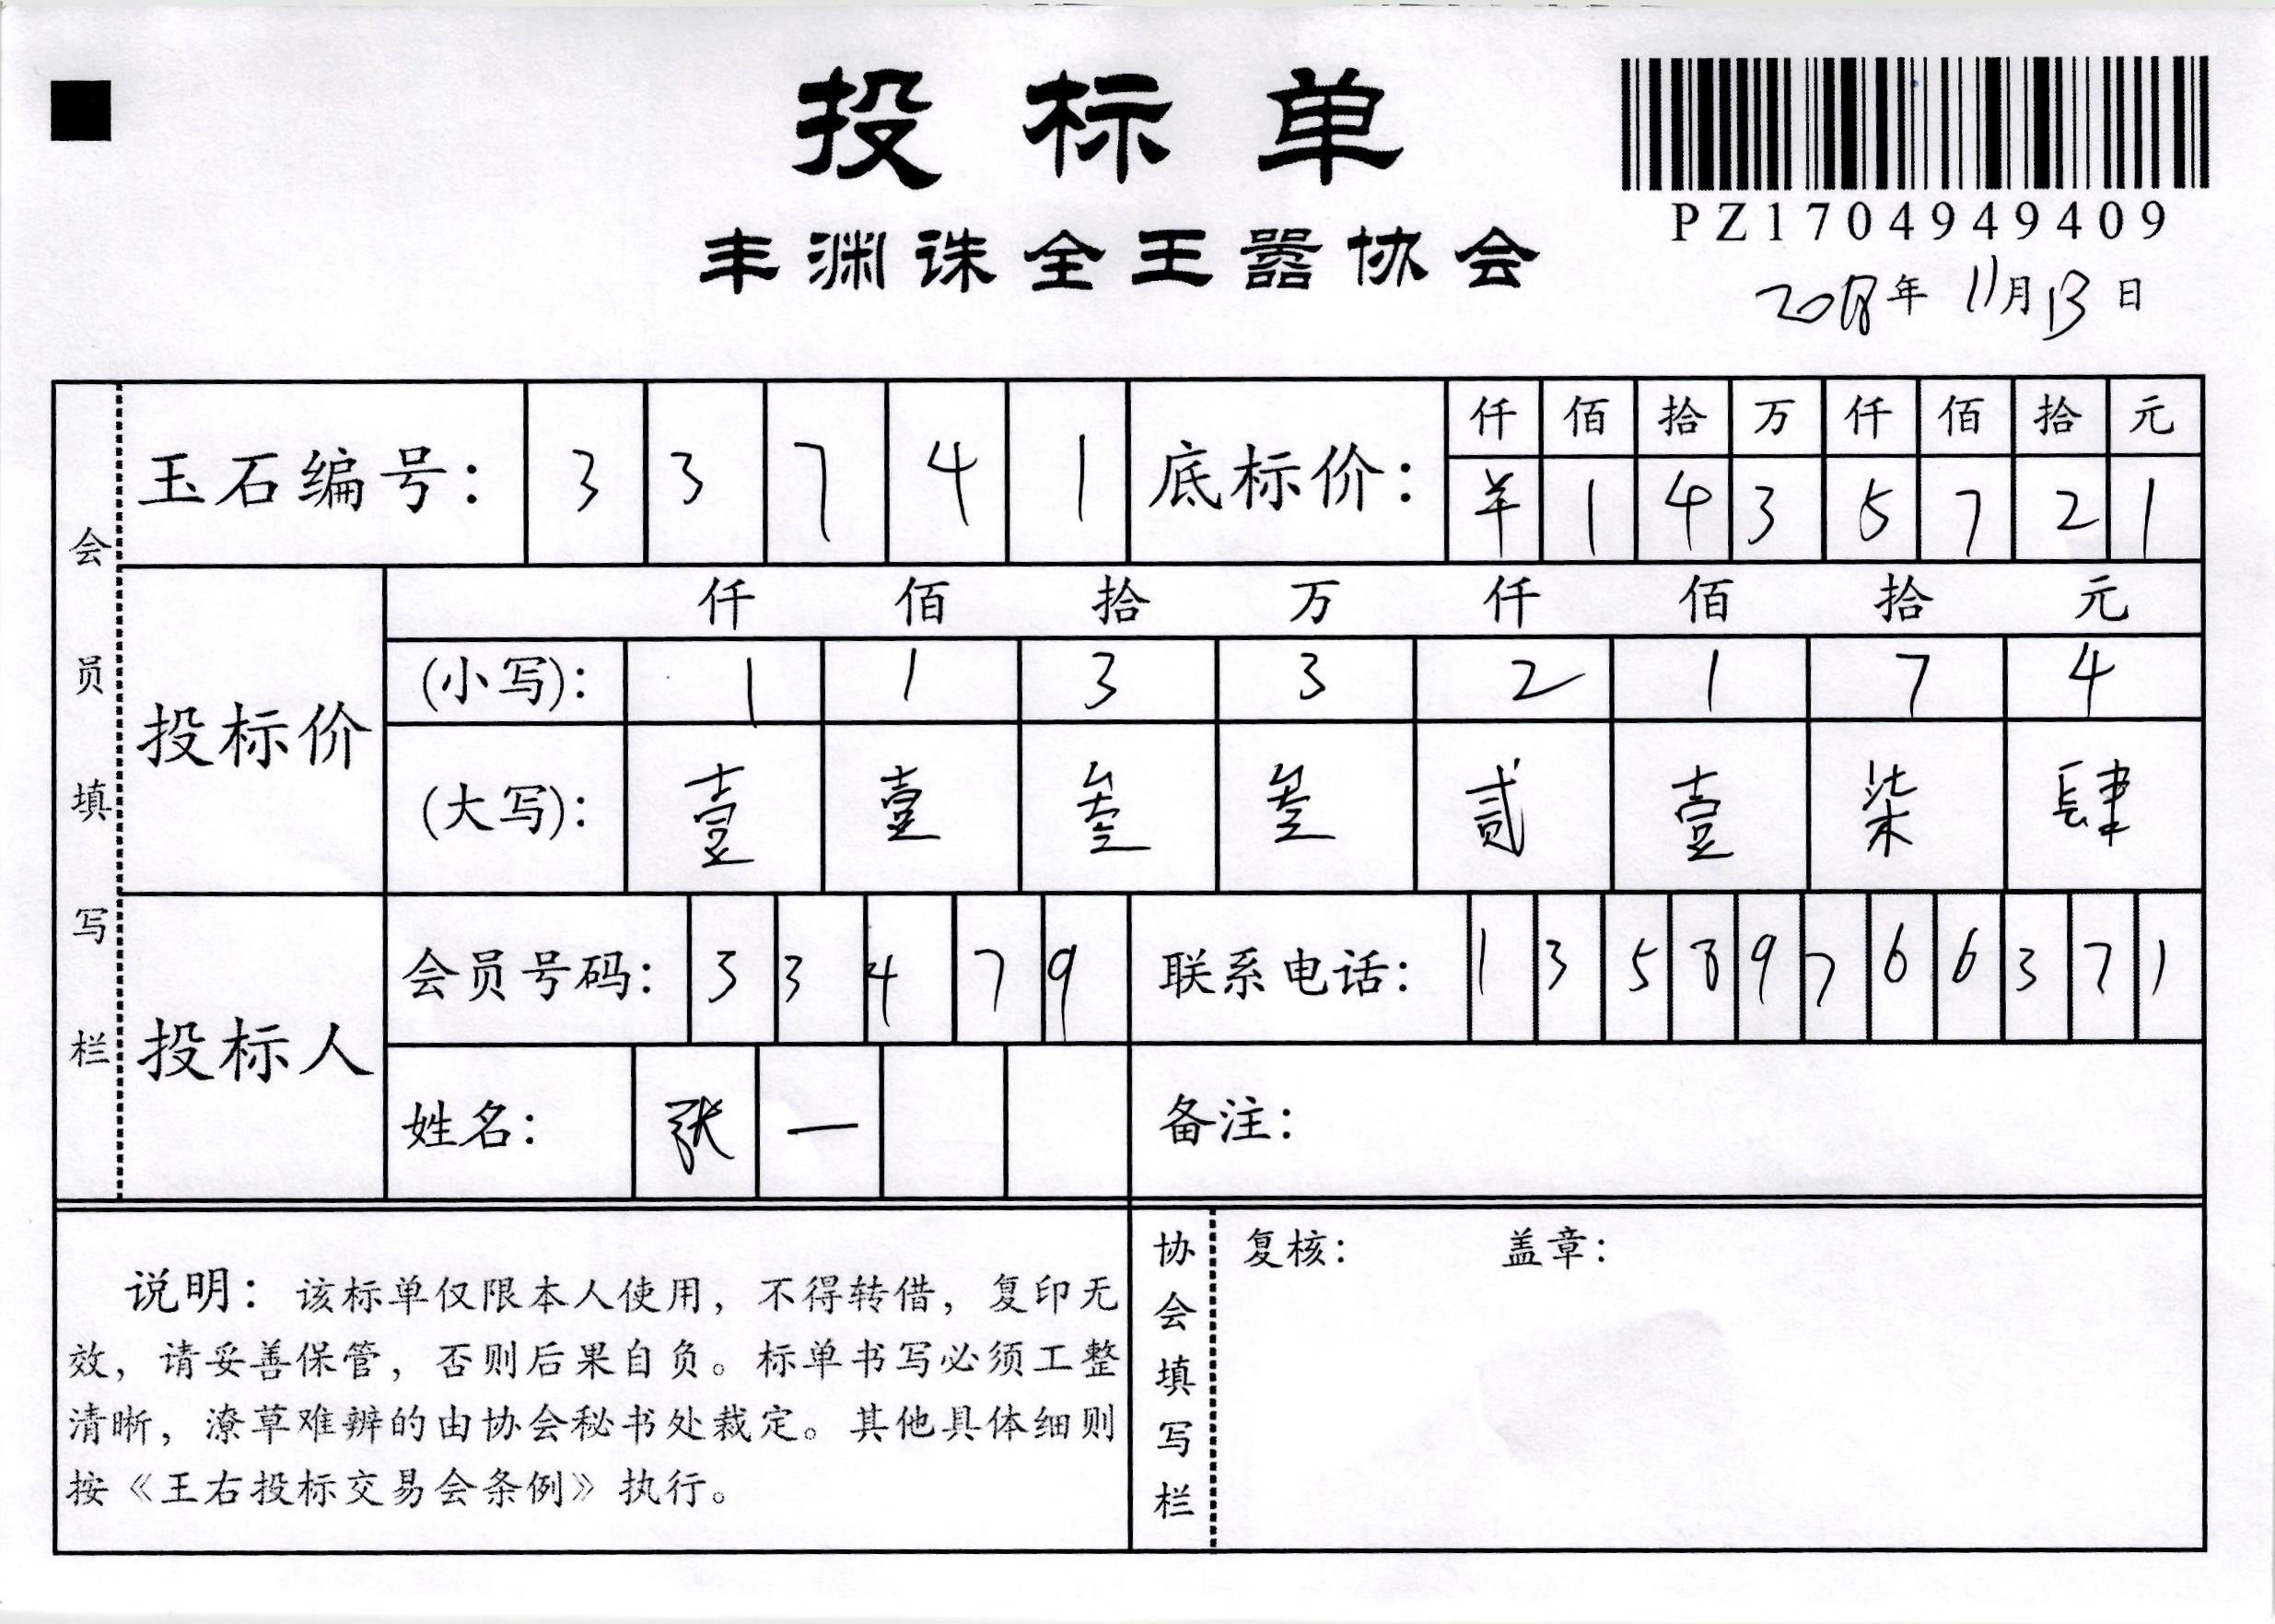 投标单
PZ1704949409
丰渊诛全王嚣协会
2018年11月13日
会员填写栏
玉石编号: 3 3 7 4 1
底标价: 仟 佰 拾 万 仟 佰 拾 元
羊 1 4 3 5 7 2 1
投标价
仟 佰 拾 万 仟 佰 拾 元
(小写): 1 1 3 3 2 1 7 4
(大写): 壹 壹 叁 叁 贰 壹 柒 肆
投标人
会员号码: 3 3 4 7 9
联系电话: 1 3 5 8 9 7 6 6 3 7 1
姓名: 张 一
备注:
说明: 该标单仅限本人使用, 不得转借, 复印无
效, 请妥善保管, 否则后果自负。标单书写必须工整
清晰, 潦草难辨的由协会秘书处裁定。其他具体细则
按《王右投标交易会条例》执行。
协会填写栏
复核: 盖章: